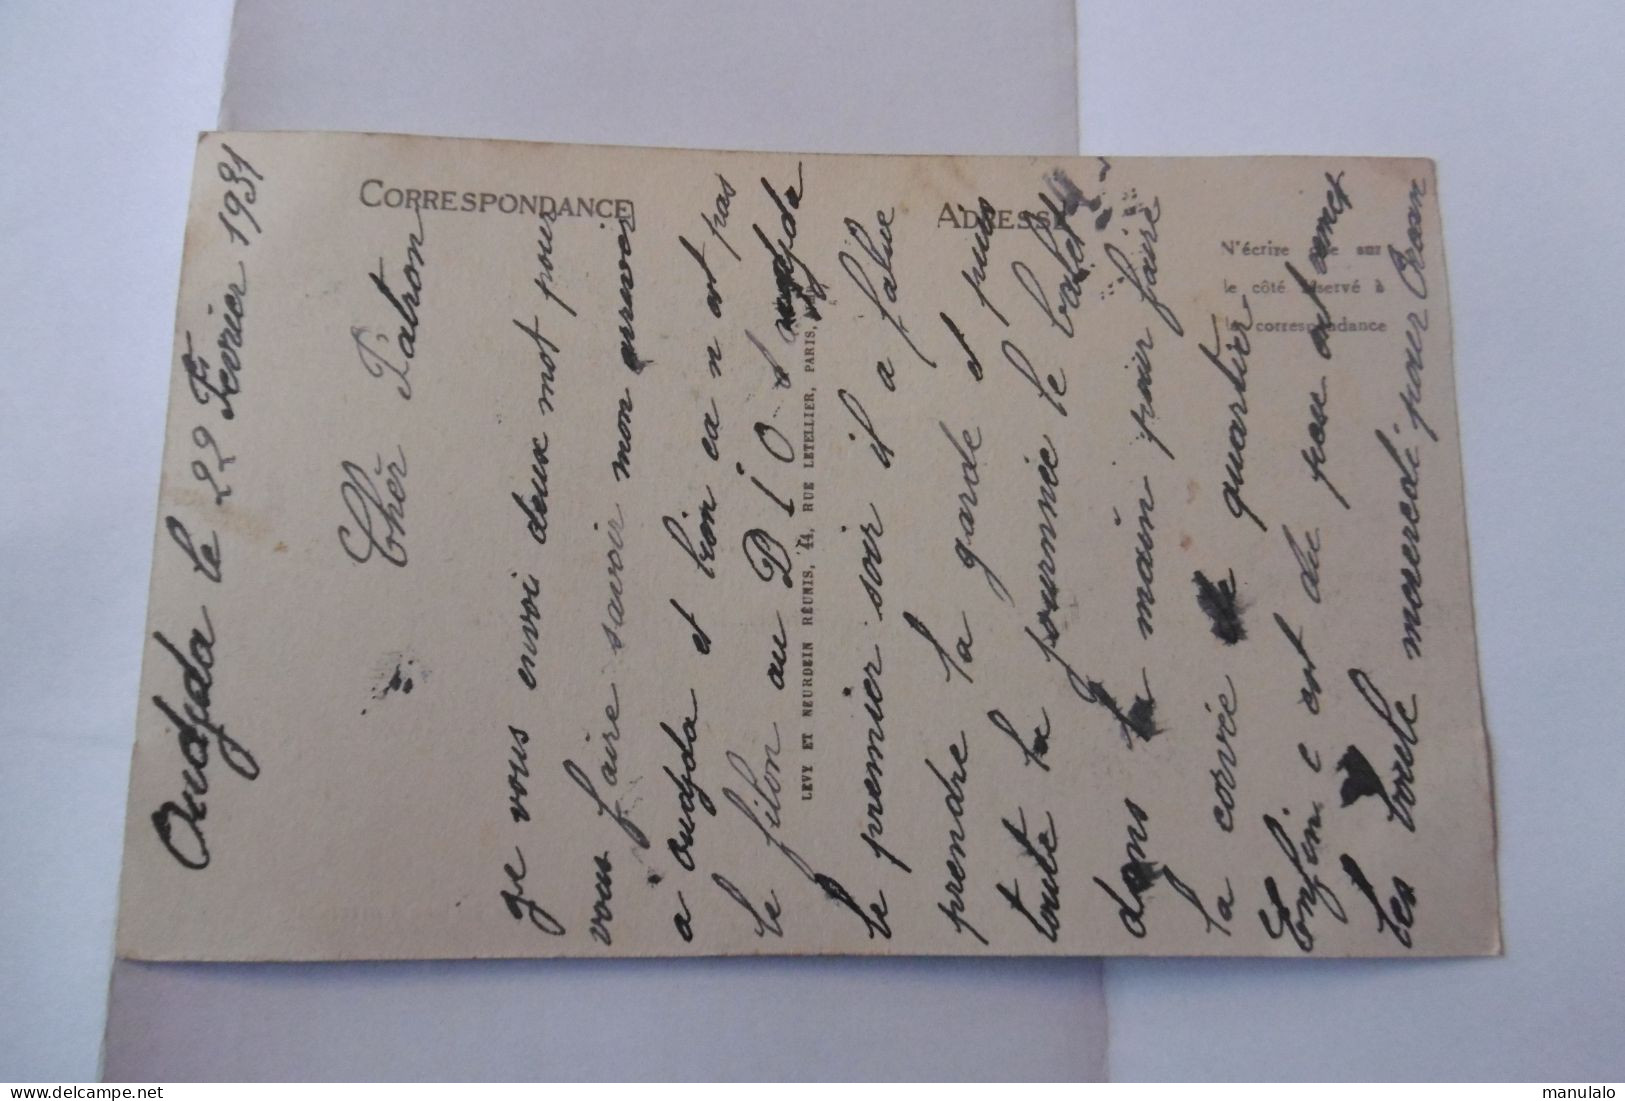 Oudjda le 22 Fevrier 1931
Cher Patron
je vous envoi deux mot pour
vous faire savoir mon arrivée
a oudjda et bien ca n est pas
le filon au D I O d oudjda
le premier soir il a falue
prendre la garde et puis
toute la journée le balet
dans la main pour faire
la corvée de quartier
Enfin c est du peu aut
les boule mercredi pour Oran
CORRESPONDANCE
ADRESSE
N'écrire que sur
le côté réservé à
la correspondance
LEVY ET NEURDEIN RÉUNIS, 44, RUE LETELLIER, PARIS,
manulalo
delcampe.net